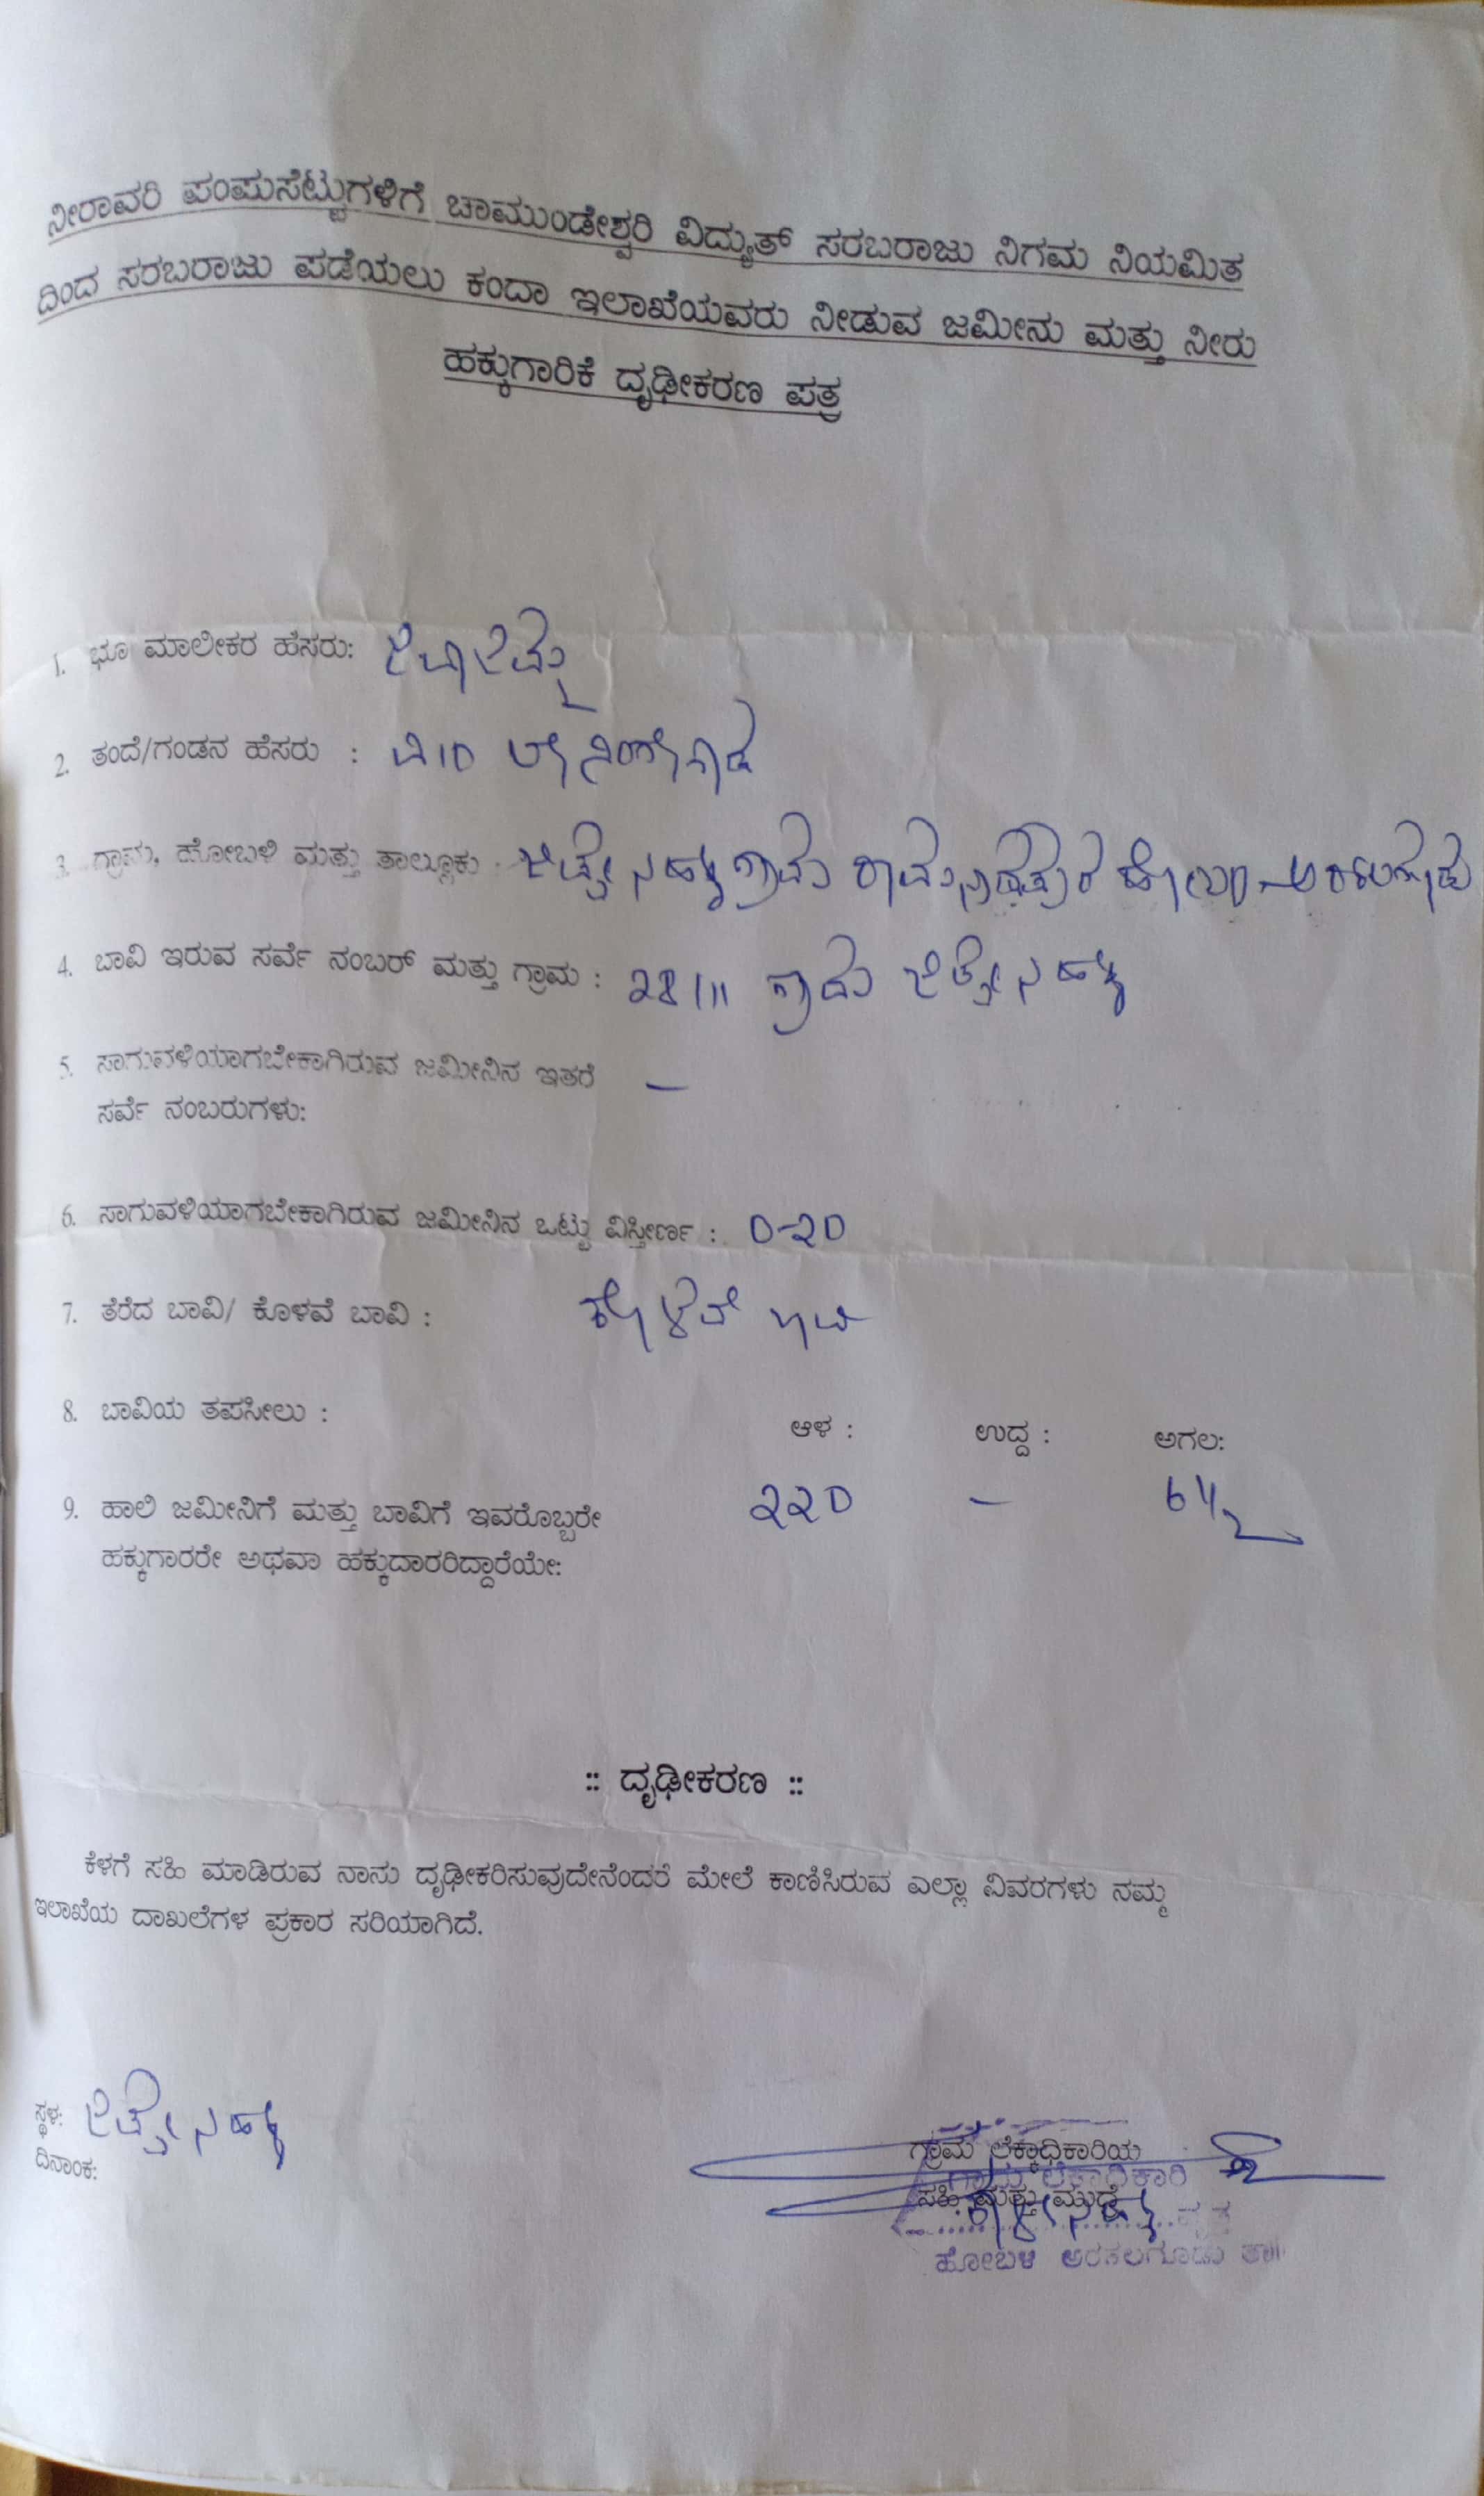 ನೀರಾವರಿ ಪಂಪುಸೆಟ್ಟುಗಳಿಗೆ ಚಾಮುಂಡೇಶ್ವರಿ ವಿದ್ಯುತ್ ಸರಬರಾಜು ನಿಗಮ ನಿಯಮಿತ
ದಿಂದ ಸರಬರಾಜು ಪಡೆಯಲು ಕಂದಾ ಇಲಾಖೆಯವರು ನೀಡುವ ಜಮೀನು ಮತ್ತು ನೀರು
ಹಕ್ಕುಗಾರಿಕೆ ದೃಢೀಕರಣ ಪತ್ರ
1. ಭೂ ಮಾಲೀಕರ ಹೆಸರು:
2. ತಂದೆ/ಗಂಡನ ಹೆಸರು :
3. ಗ್ರಾಮ, ಹೋಬಳಿ ಮತ್ತು ತಾಲ್ಲೂಕು ಗ್ರಾಮ
4. ಬಾವಿ ಇರುವ ಸರ್ವೆ ನಂಬರ್ ಮತ್ತು ಗ್ರಾಮ : ಗ್ರಾಮ
5. ಸಾಗುವಳಿಯಾಗಬೇಕಾಗಿರುವ ಜಮೀನಿನ ಇತರೆ —
ಸರ್ವೆ ನಂಬರುಗಳು:
6. ಸಾಗುವಳಿಯಾಗಬೇಕಾಗಿರುವ ಜಮೀನಿನ ಒಟ್ಟು ವಿಸ್ತೀರ್ಣ : 0-೨೦
7. ತೆರೆದ ಬಾವಿ/ ಕೊಳವೆ ಬಾವಿ : ಕೊಳವೆ ಬಾವಿ
8. ಬಾವಿಯ ತಪಸೀಲು : ಆಳ : ಉದ್ದ : ಅಗಲ:
9. ಹಾಲಿ ಜಮೀನಿಗೆ ಮತ್ತು ಬಾವಿಗೆ ಇವರೊಬ್ಬರೇ ೨೨೦ — 6 1/2
ಹಕ್ಕುಗಾರರೇ ಅಥವಾ ಹಕ್ಕುದಾರರಿದ್ದಾರೆಯೇ:
:: ದೃಢೀಕರಣ ::
ಕೆಳಗೆ ಸಹಿ ಮಾಡಿರುವ ನಾನು ದೃಢೀಕರಿಸುವುದೇನೆಂದರೆ ಮೇಲೆ ಕಾಣಿಸಿರುವ ಎಲ್ಲಾ ವಿವರಗಳು ನಮ್ಮ
ಇಲಾಖೆಯ ದಾಖಲೆಗಳ ಪ್ರಕಾರ ಸರಿಯಾಗಿದೆ.
ಸ್ಥಳ:
ದಿನಾಂಕ:
ಗ್ರಾಮ ಲೆಕ್ಕಾಧಿಕಾರಿಯ
ಗ್ರಾಮ ಲೆಕ್ಕಾಧಿಕಾರಿ
ಸಹಿ ಮತ್ತು ಮುದ್ರೆ
ವೃತ್ತ
ಹೋಬಳಿ ಅರಕಲಗೂಡು ತಾ||